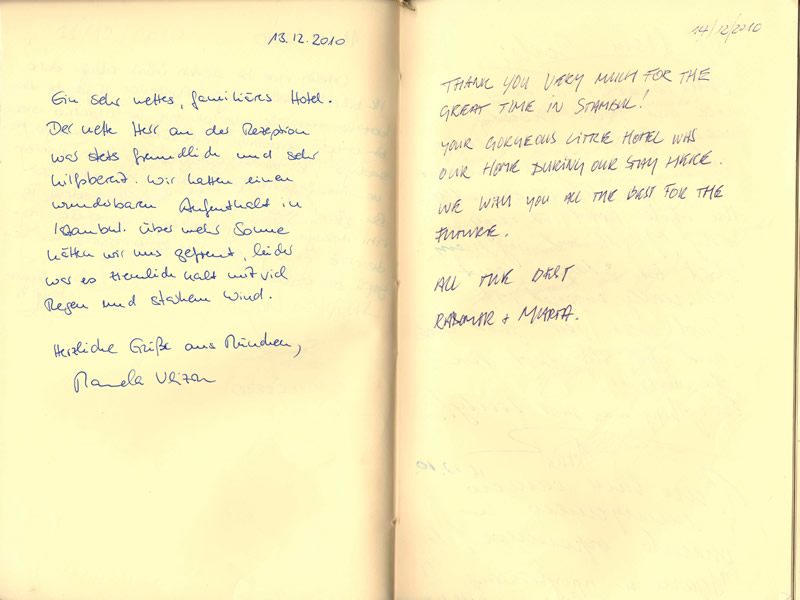 13.12.2010
Ein sehr nettes, familiäres Hotel.
Der nette Herr an der Rezeption
war stets freundlich und sehr
hilfsbereit. Wir hatten einen
wunderbaren Aufenthalt in
Istanbul. Über mehr Sonne
hätten wir uns gefreut, leider
war es ziemlich kalt mit viel
Regen und starkem Wind.
Herzliche Grüße aus München,
14/12/2010
THANK YOU VERY MUCH FOR THE
GREAT TIME IN STAMBUL!
YOUR GORGEOUS LITTLE HOTEL WAS
OUR HOME DURING OUR STAY HERE.
WE WISH YOU ALL THE BEST FOR THE
FUTURE.
ALL THE BEST
+ MARTA.